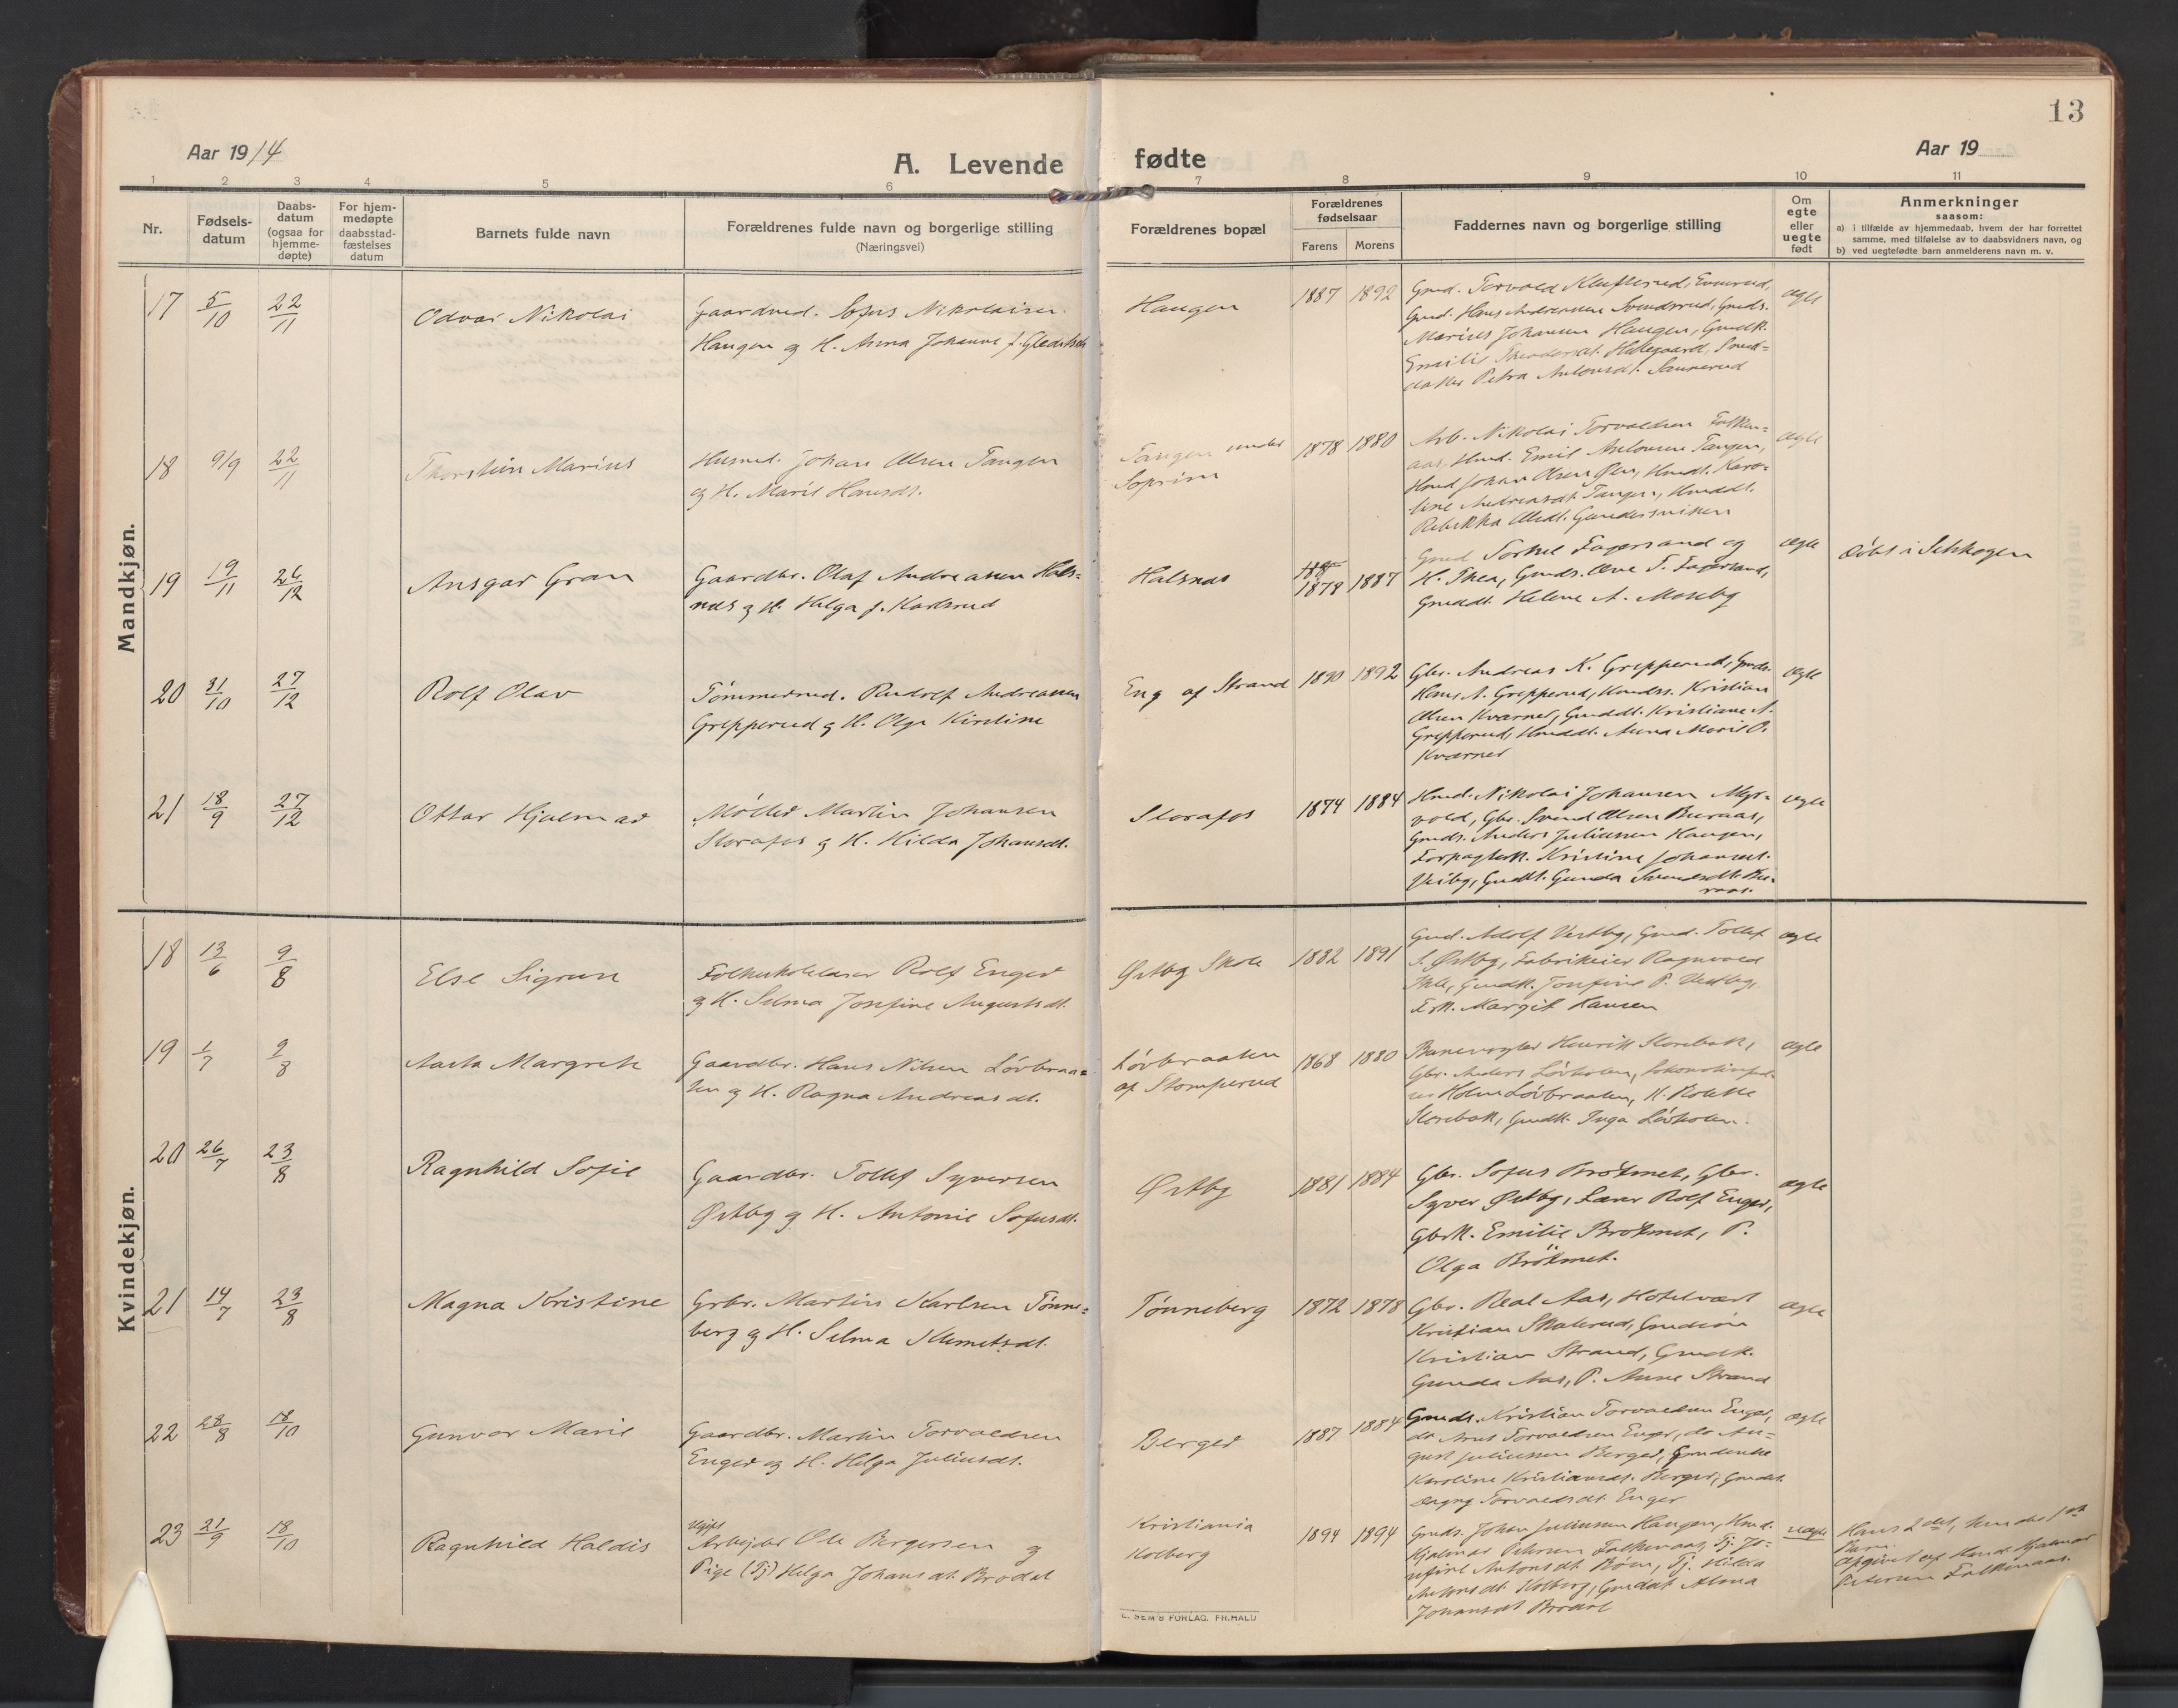 13
Aar 1914
A. Levende
fødte
Aar 19
1 2 3 4 5 6 7 8 9 10 11
Nr.
Fødsels-
datum
Daabs-
datum
(ogsaa for
hjemme-
døpte)
For hjem-
medøpte
daabsstad-
fæstelses
datum
Barnets fulde navn
Forældrenes fulde navn og borgerlige stilling
(Næringsvei)
Forældrenes bopæl
Forældrenes
fødselsaar
Farens Morens
Faddernes navn og borgerlige stilling
Om
egte
eller
uegte
født
Anmerkninger
saasom:
a) i tilfælde av hjemmedaab, hvem der har forrettet
samme, med tilføielse av to daabsvidners navn, og
b) ved uegtefødte barn anmelderens navn m. v.
Mandkjøn.
17 5/10 22/11 Odvar Nikolai
Gaardmd. Sofus Nikolaisen
Haugen og H. Anna Johanne f.
Haugen 1887 1892
Gmd. Torvald
Gmd. Hans Andreassen Svendsrud, Gmds.
Marius Johansen Haugen, Gmdk.
Emilie Hellegaard,
Petra Antonsdt.
ægte
18 9/9 22/11 Thorstein Marius
Husmd. Johan Olsen Tangen
og H. Marie Hansdt.
Tangen under
Soprim
1878 1880
Arb. Nikolai Torvaldsen Falken-
aas, Hmd. Emil Antonsen Tangen,
Hmd Johan Olsen Hmdk. Karo-
line Andreasdt. Tangen, Hmddt.
Rebekka Olsdt.
ægte
19 19/11 26/12 Ansgar Gran
Gaardbr. Olaf Andreassen Hals-
næs og H. Helga f. Karlsrud
Halsnæs
1878 1887
Gmd Torkel Fagersand og
H. Thea, Gmds. T. Fagersand,
Gmddt. Helene A. Moseby
ægte
døbt i Setskogen
20 31/10 27/12 Rolf Olav
Tømmermd. Rudolf Andreassen
Grepperud og H. Olga Kirstine
Eng af Strand 1890 1892
Gbr. Andreas K. Grepperud, Gmds.
Hans A. Grepperud, Hmds. Kristian
Olsen Kværnet, Gmddt. Kristiane A.
Grepperud, Hmddt. Anna Marie O.
Kværnet
ægte
21 18/9 27/12 Ottar Hjalmar
Møller Martin Johansen
Storafos og H. Hilda Johansdt.
Storafos 1874 1884
Hmd. Nikolai Johansen Myr-
vold, Gbr. Svend Olsen Buraas,
Gmds. Anders Juliussen Haugen,
Forpagterk. Kristine Johansdt.
Veiby, Gmdt. Gunda Svendsdt. Bu-
raas.
ægte
Kvindekjøn.
18 13/6 9/8 Else Sigrun
Folkeskolelærer Rolf Enger
og H. Selma Josefine Augustsdt.
Østby Skole 1882 1891
Gmd. Adolf Vestby, Gmd. Tollef
S. Østby, Fabrikeier Ragnvald
Ihle, Gmdk. Josefine P. Vestby,
Frk. Margit Hansen
ægte
19 1/7 9/8 Aasta Margrete
Gaardbr. Hans Nilsen Løvbraa-
ten og H. Ragna Andreasdt.
Løvbraaten
af Stomperud
1868 1880
Banevogter Henrik Storebok,
Gbr. Anders Løvholen,
Løvbraaten, H.
Storebok, Gmdk. Inga Løvholen.
ægte
20 26/7 23/8 Ragnhild Sofie
Gaardbr. Tollef Syversen
Østby og H. Antonie Sofusdt.
Østby 1881 1884
Gbr. Sofus Brøtmet, Gbr.
Syver Østby, Lærer Rolf Enger,
Gbrk. Emilie Brøtmet, P.
Olga Brøtmet.
ægte
21 14/7 23/8 Magna Kristine
Grbr. Martin Karlsen Tønne-
berg og H. Selma Klemetsdt.
Tønneberg 1872 1878
Gbr. Real Aas, Hotelvært
Kristian Skulerud,
Kristian Strand, Gmdk.
Gunda Aas, P. Anne Strand
ægte
22 28/8 18/10 Gunvor Marie
Gaardbr. Martin Torvaldsen
Enger og H. Helga Juliusdt.
Berger 1887 1884
Gmds. Kristian Torvaldsen Enger,
do Arnt Torvaldsen Enger, do Au-
gust Juliussen Berger, Gmdenke
Karoline Kristiansdt. Berger, Gmdt.
Dagny Torvaldsdt. Enger
ægte
23 21/9 18/10 Ragnhild Haldis
Ugift
Arbejder Ole Bergersen og
Pige (Tj) Helga Johansdt. Brødal
Kristiania
Kolberg
1894 1894
Gmds. Johan Juliussen Haugen, Hmd.
Hjalmar Petersen Falkenaas, Tj. Jo-
sefine Antonsdt. Bøen, Tj. Hilda
Antonsdt. Kolberg, Gmddt. Alma
Johansdt. Brødal
uægte
Hans 2det, hendes 1ste
Barn.
Opgivet af Hmd. Hjalmar
Petersen Falkenaas.
E. SEM'S FORLAG. FR.HALD